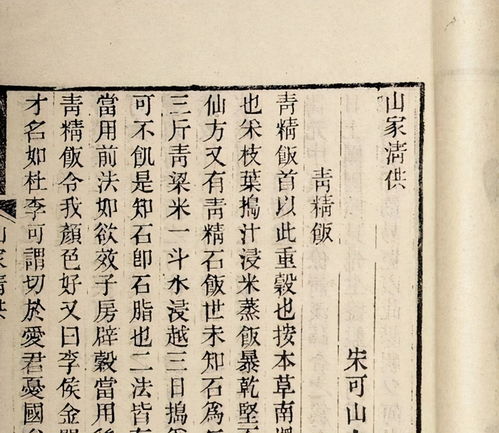 山家清供
宋可山
青精飯
青精飯首以此重穀也按本草南燭
也采枝葉搗汁浸米蒸飯暴乾堅
仙方又有青精石飯世未知石爲
三斤青粱米一斗水浸越三日搗
可不飢是知石卽石脂也二法皆有
當用前法如欲效子房辟穀當用後
青精飯令我顔色好又曰李侯金閨
才名如杜李可謂切於愛君憂國
山家清供